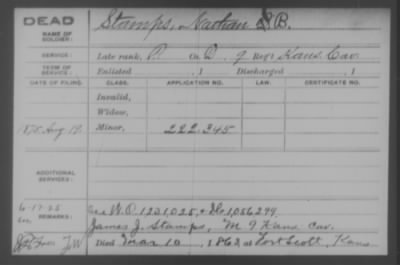 DEAD
NAME OF SOLDIER:
Stamps, Nathan S.B.
SERVICE:
Late rank, P. Co. D, 9 Reg't Kans. Cav.
TERM OF SERVICE:
Enlisted , 1 Discharged , 1
DATE OF FILING. CLASS. APPLICATION NO. LAW. CERTIFICATE NO.
Invalid,
Widow,
1875 Aug 19. Minor, 222.345
ADDITIONAL SERVICES:
6-17-25
REMARKS:
W.O. 1231025, & 1056299
James J. Stamps, M 9 Kans. Cav.
Died Mar 10, 1862, at Fort Scott, Kans.